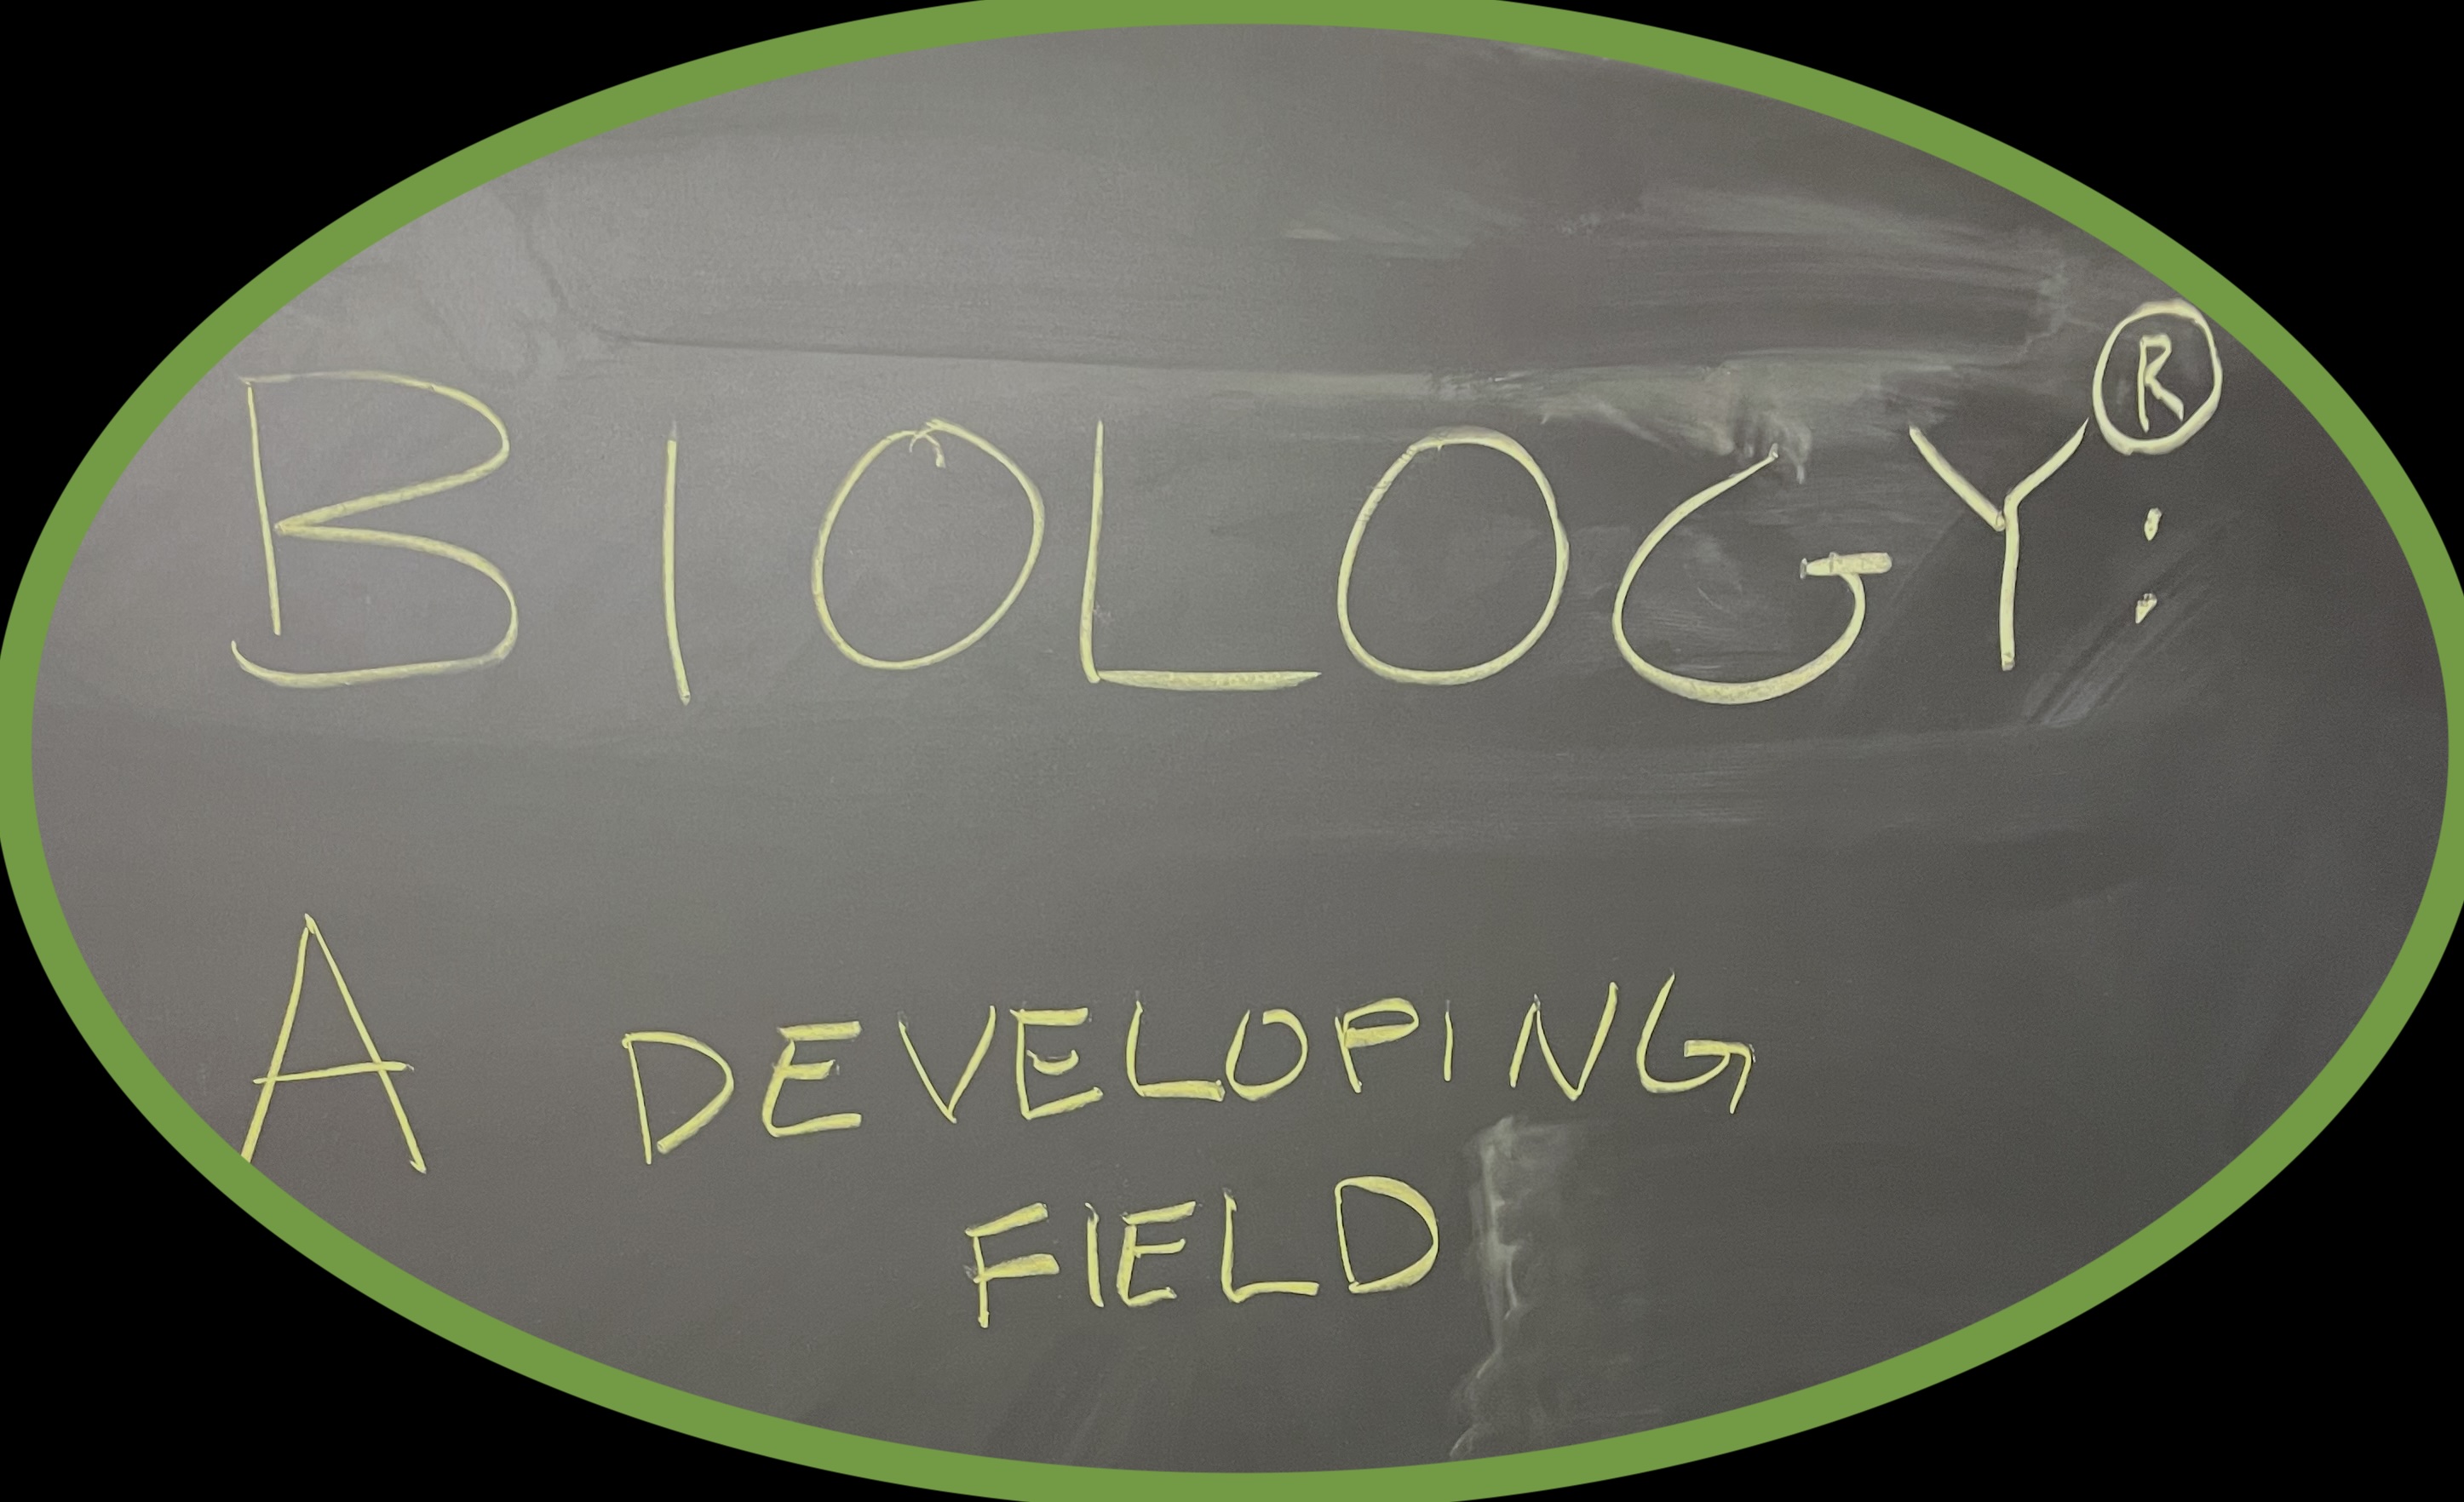 BIOLOGY®:
A DEVELOPING
FIELD